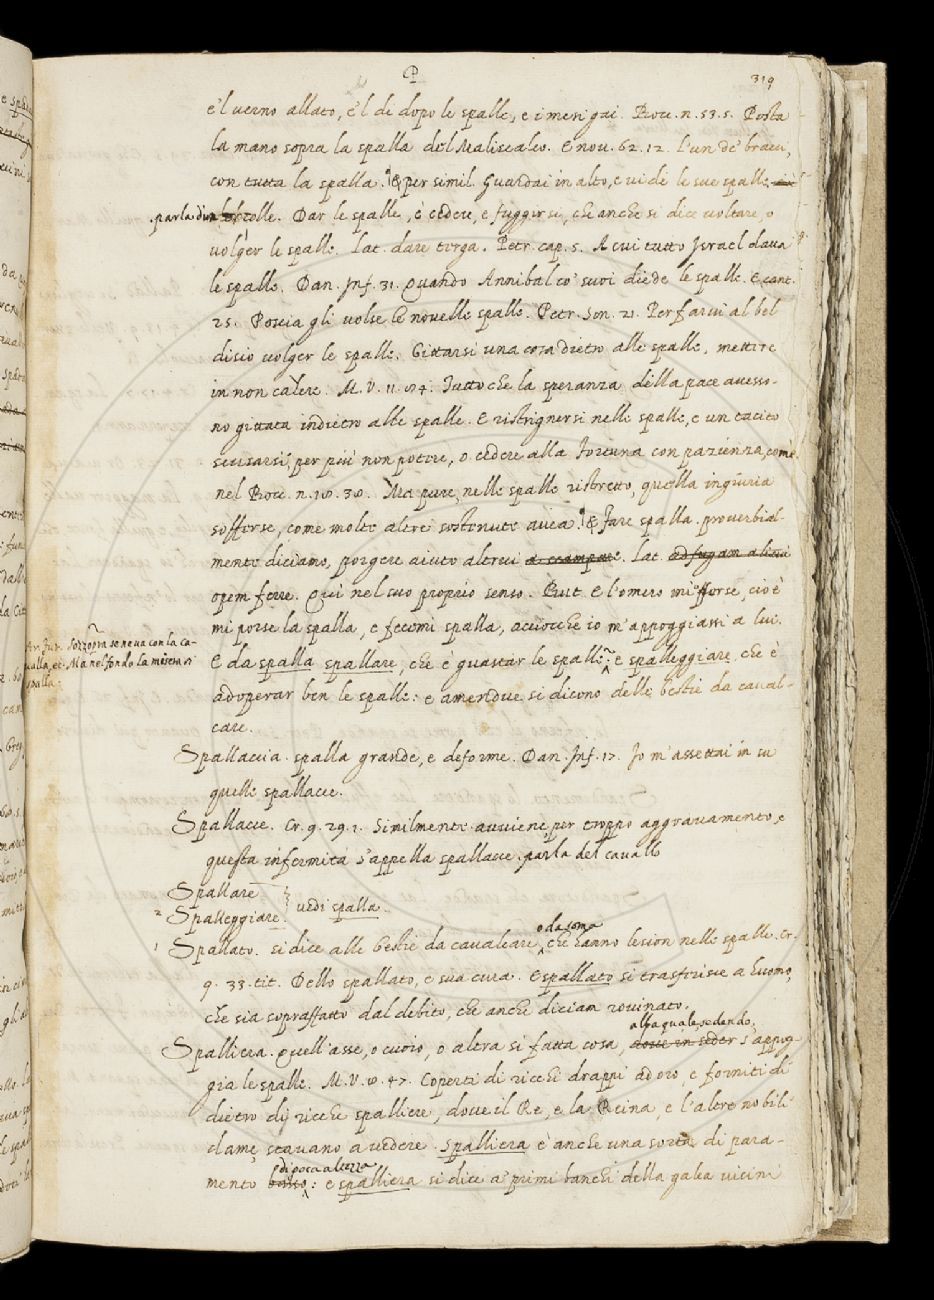 P
319
e'l verno allato, e'l dì dopo le spalle, e i merigai. Bocc. n. 53. 5. Posta
la mano sopra la spalla del Maliscalco. E nov. 62. 12. L'un de' bracci,
con tutta la spalla. & per simil. Guardai in alto, e vidi le sue spalle.
parla d'un colle. Dar le spalle, è cedere, e fuggirsi, che anche si dice voltare, o
volger le spalle. Lat. dare terga. Petr. cap. 5. A cui tutto Israel dava
le spalle. Dan. Inf. 31. Quando Annibal co' suoi diede le spalle. E cant.
25. Poscia gli volse le novelle spalle. Petr. Son. 21. Per farvi al bel
disio volger le spalle. Gittarsi una cosa dietro alle spalle, mettere
in non calere. M. V. 11. Tutto che la speranza della pace avesso-
no gittata indietro alle spalle. E ristrignersi nelle spalle, e un tacito
scusarsi, per più non potere, o cedere alla Fortuna con pazienza, com'è
nel Bocc. n. 18. 38. Ma pure, nelle spalle ristretto, quella ingiuria
sofferse, come molte altre sostenute avea. & Fare spalla. proverbial-
mente diciamo, porgere aiuto altrui a scampare. Lat. ad fugam alicui
opem ferre. Qui nel suo proprio senso. But. E l'omero mi offorse, cioè
mi porse la spalla, e fecemi spalla, acciocche io m'appoggiassi a lui.
Ar. Fur. Sozzopra se ne va con la ca-
valla, et. Ma nel fondo la misera si
spalla.
E da spalla spallare, che è guastar le spalle: e spalleggiare che è
adoperar ben le spalle: e amendue si dicono delle bestie da caval-
care.
Spallaccia. spalla grande, e deforme. Dan. Inf. 17. Io m'assettai in su
quelle spallacce.
Spallacce. Cr. 9. 29. 1. Similmente avviene, per troppo aggravamento, e
questa infermità s'appella spallacce. parla del cavallo
Spallare
2 Spalleggiare. vedi spalla.
o da soma
1 Spallato. si dice alle bestie da cavalcare, che hanno lesion nelle spalle. Cr.
9. 33. tit. Dello spallato, e sua cura. E spallato si trasferisce a huomo,
che sia sopraffatto dal debito, che anche diciam rovinato.
alla quale sedendo,
Spalliera. Quell'asse, o cuoio, o altra sì fatta cosa, dove in seder s'appog-
gia le spalle. M. V. 8. 47. Coperti di ricchi drappi ad oro, e forniti di
dietro di ricche spalliere, dove il Re, e la Reina, e l'altre nobili
dame stavano a vedere. Spalliera è anche una sorta di para-
di poca altezza
mento basso: e spalliera si dice a' primi banchi della galea vicini